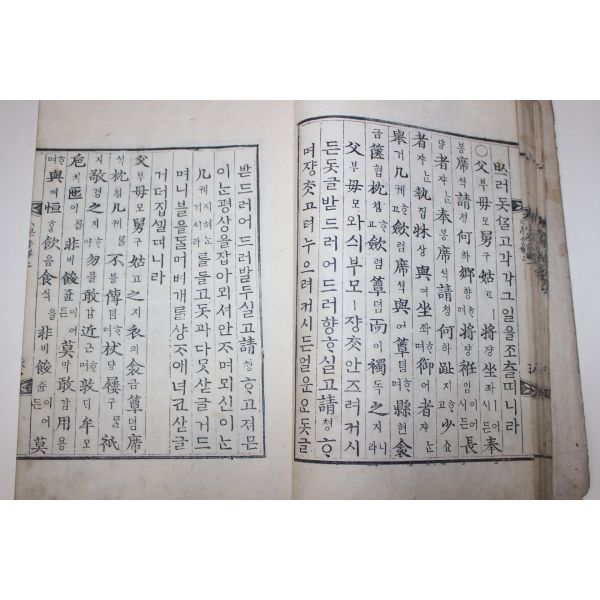 ᄡᅳ러돗ᄭᆞᆯ고각각그일을조츨띠니라
○父부母모舅구姑고ㅣ將쟝坐좌ㅣ어시든奉
봉席셕請쳥何하鄕향ᄒᆞ며將쟝衽임이어시든長
댱者쟈ᄂᆞᆫ奉봉席셕請쳥何하趾지ᄒᆞ고少쇼
者쟈ᄂᆞᆫ執집牀상與여坐좌ᄒᆞ며御어者쟈ᄂᆞᆫ
擧거几궤ᄒᆞ고斂렴席셕與여簟뎜ᄒᆞ며縣현衾
금篋협枕침ᄒᆞ고斂렴簟뎜而이襡독之지니라
父부母모와싀부모ㅣ쟝ᄎᆞᆺ안즈려커시
든돗글받드러어드러향ᄒᆞ실고請쳥ᄒᆞ
며쟝ᄎᆞᆺ고텨누으려커시든얼운은돗글
받드러어드러발두실고請쳥ᄒᆞ고져믄
이ᄂᆞᆫ평상을잡아뫼셔안즈며뫼신이ᄂᆞᆫ
几궤지혀ᄂᆞᆫ거라ᄅᆞᆯ들고돗과다ᄆᆞᆺ삳글거드
며니블을ᄃᆞᆯ며벼개ᄅᆞᆯ샹ᄌᆞ애녀코삳글
거더집ᄭᅵᆯ띠니라
父부母모舅구姑고之지衣의衾금簟뎜席
셕枕침几궤ᄅᆞᆯ不블傳뎐ᄒᆞ며杖댱屨구ᄅᆞᆯ祗
지敬경之지ᄒᆞ야勿믈敢감近근ᄒᆞ며敦ᄃᆡ牟모
巵치匜이ᄅᆞᆯ非비餕쥰이어든莫막敢감用용
ᄒᆞ며與여恒ᄒᆞᆼ飮음食식을非비餕쥰이어든莫